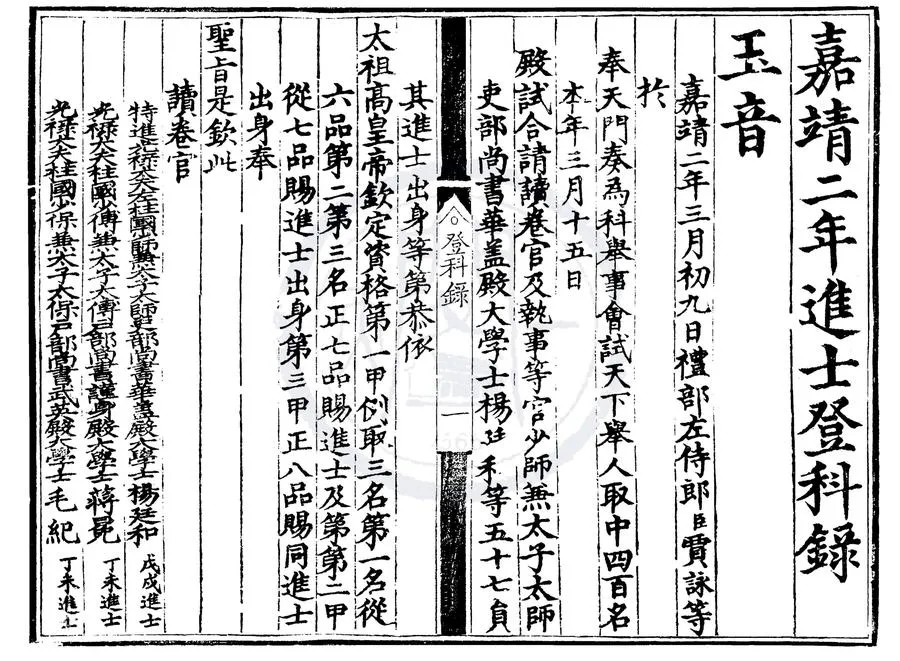 嘉靖二年進士登科錄
玉音
嘉靖二年三月初九日禮部左侍郎臣賈詠等
於
奉天門奏為科舉事會試天下舉人取中四百名
本年三月十五日
殿試合請讀卷官及執事等官少師兼太子太師
吏部尚書華蓋殿大學士楊廷和等五十七員
其進士出身等第恭依
登科錄
一
太祖高皇帝欽定資格第一甲例取三名第一名從
六品第二第三名正七品賜進士及第第二甲
從七品賜進士出身第三甲正八品賜同進士
出身奉
聖旨是欽此
讀卷官
特進光祿大夫左柱國少師兼太子太師吏部尚書華蓋殿大學士楊廷和 戊戌進士
光祿大夫柱國少傅兼太子太傅戶部尚書謹身殿大學士蔣冕 丁未進士
光祿大夫柱國少保兼太子太保戶部尚書武英殿大學士毛紀 丁未進士